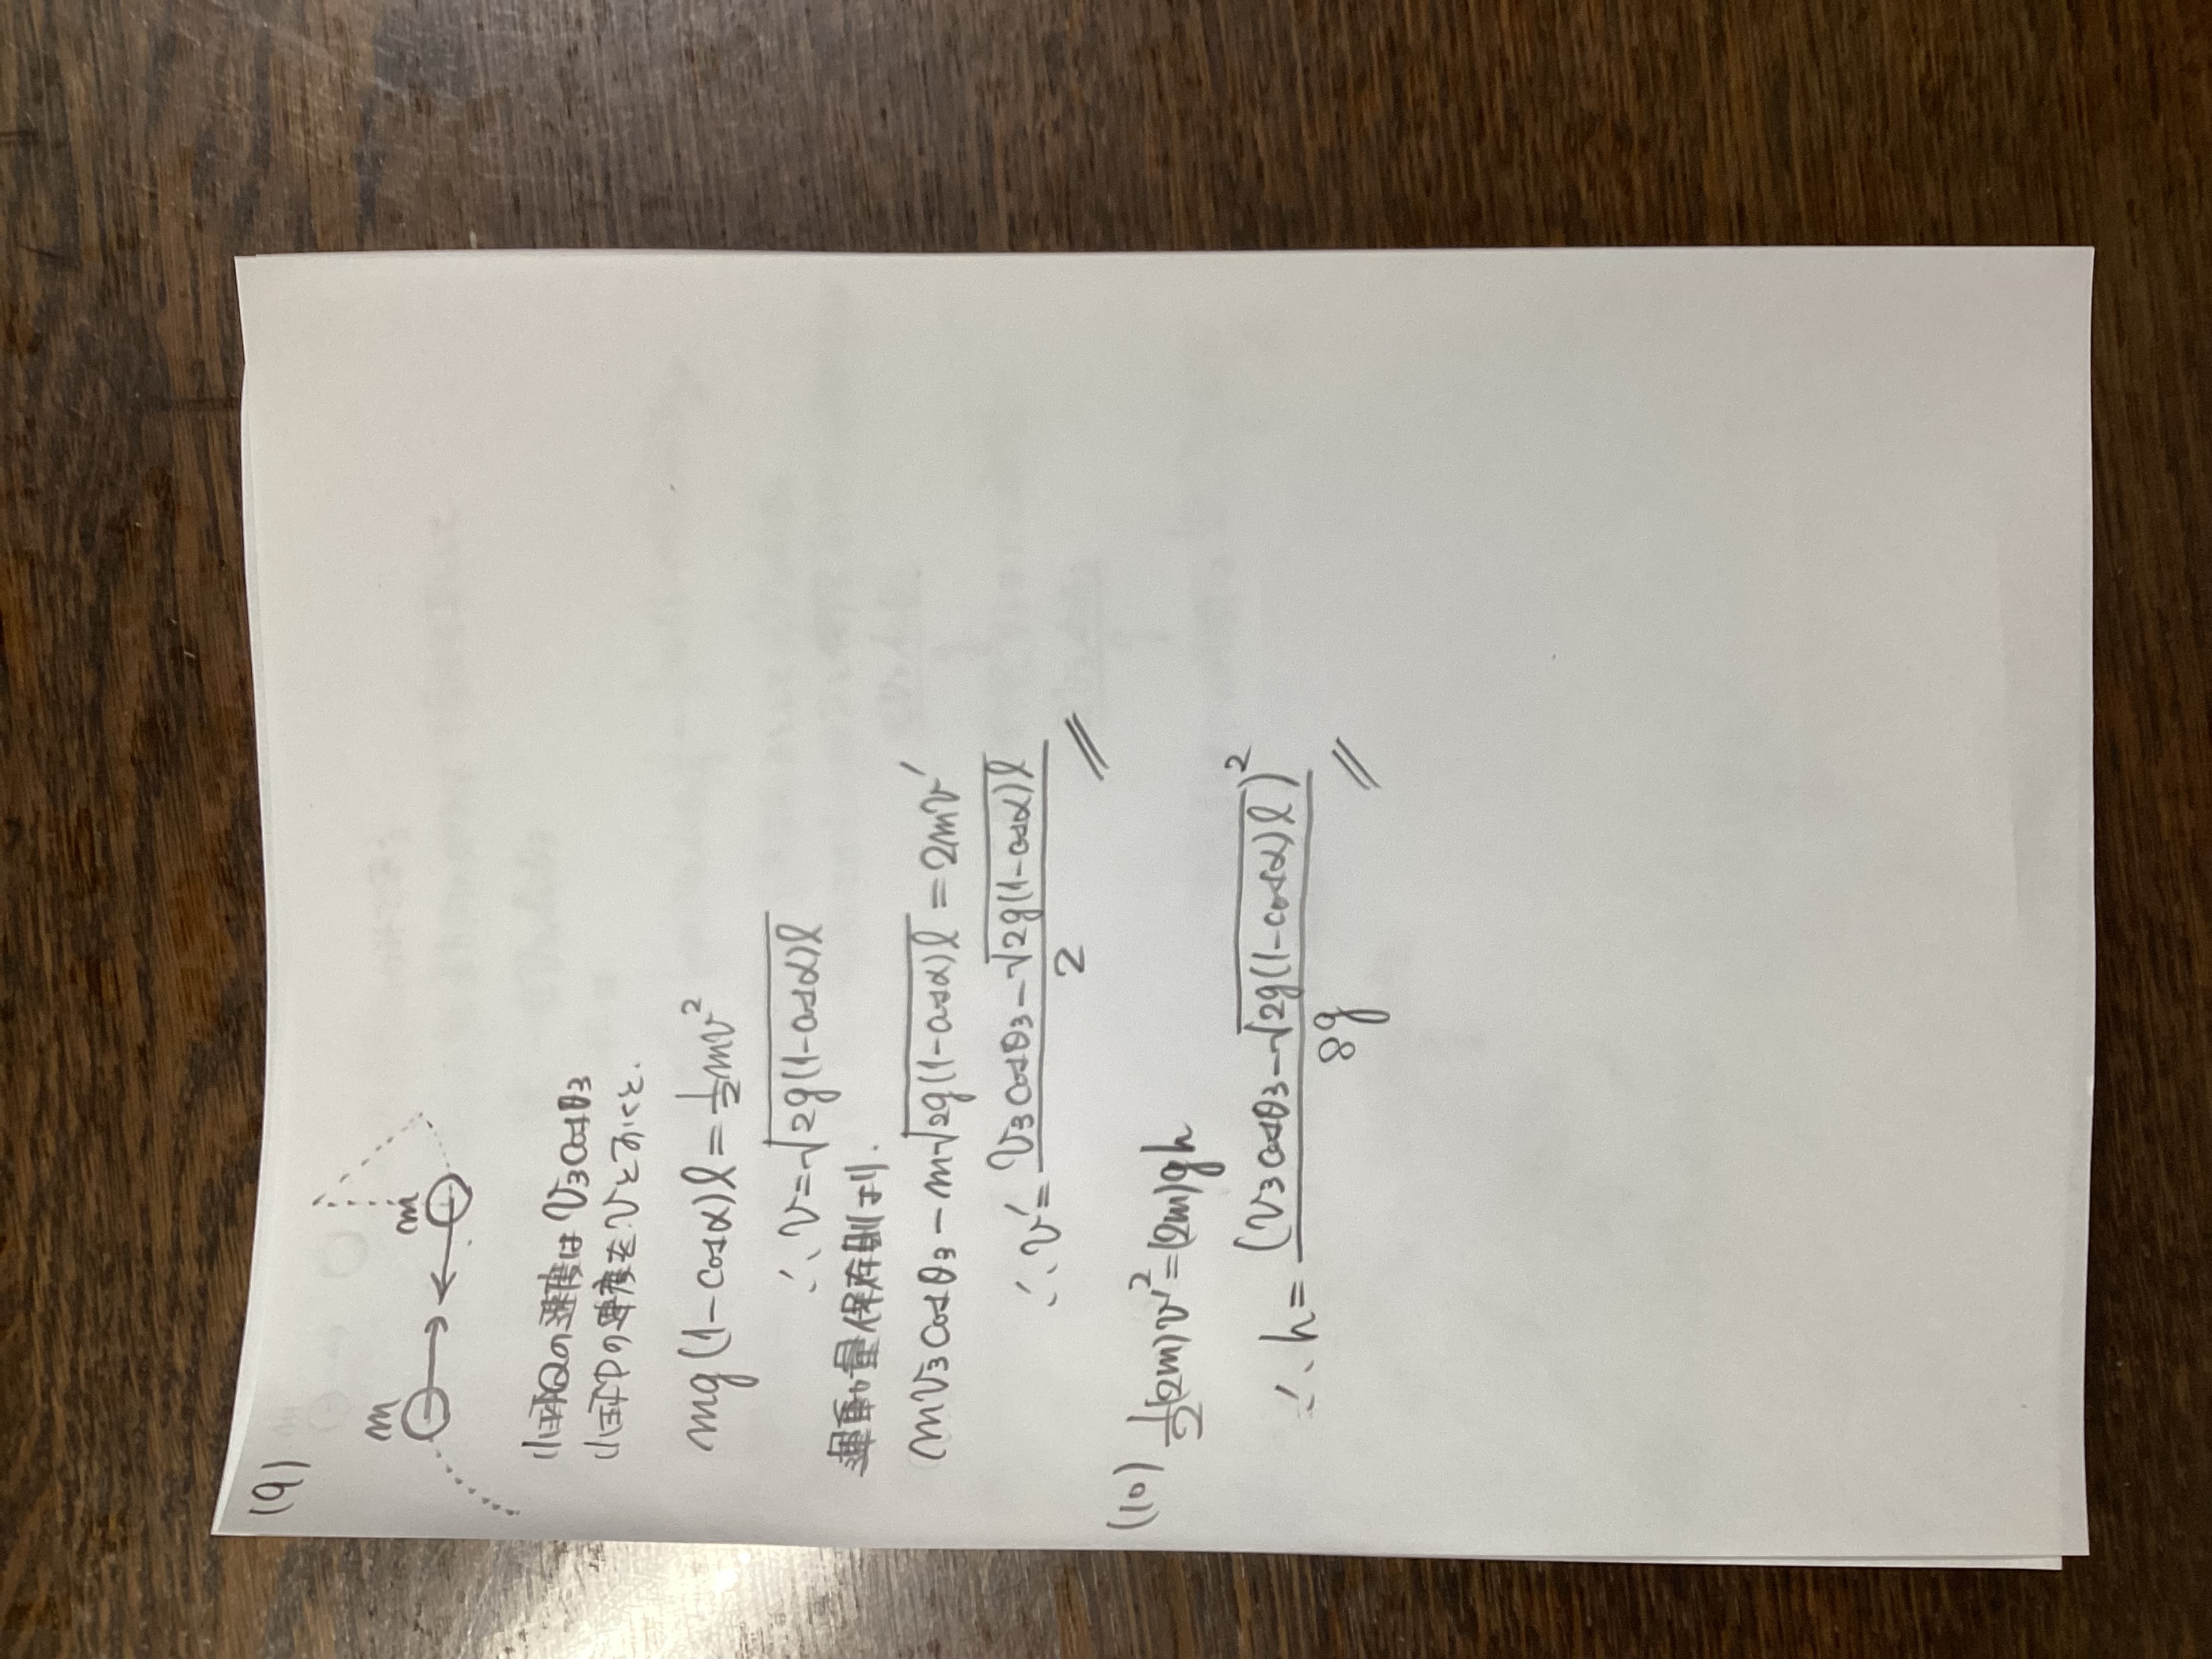 (9)
m m
小球Qの速度は v₃cosθ₃
小球Pの速度を v とおくと.
mg(1-cosα)l = 1/2 mv²
∴ v = √(2g(1-cosα)l)
運動量保存則より.
mv₃cosθ₃ - m√(2g(1-cosα)l) = 2mv'
∴ v' = (v₃cosθ₃ - √(2g(1-cosα)l)) / 2 //
(10) 1/2 (2m)v'² = (2m)gh
∴ h = (v₃cosθ₃ - √(2g(1-cosα)l))² / 8g //